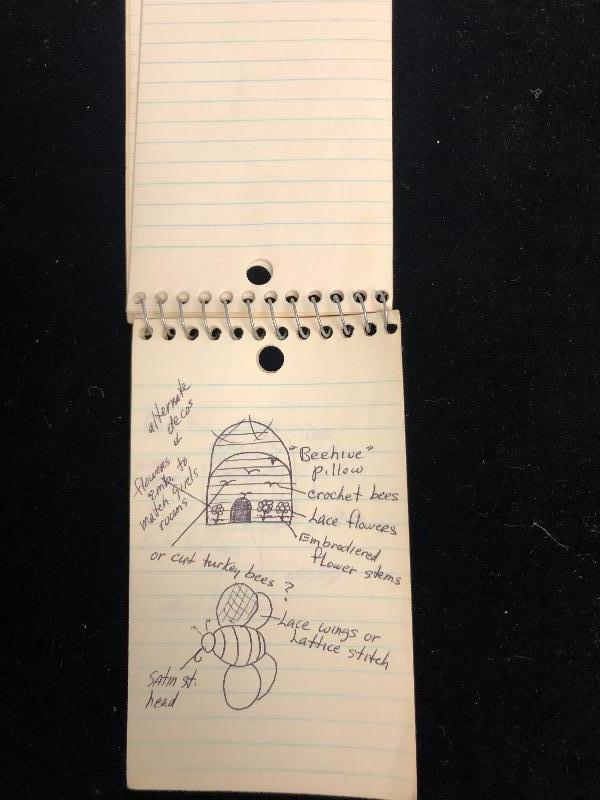 alternate
decos
&
flowers
emb. to
match girls
rooms
"Beehive"
pillow
crochet bees
Lace flowers
Embrodiered
flower stems
or cut turkey bees?
Lace wings or
Lattice stitch
Satin st.
head